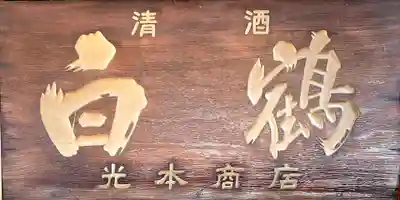 清酒
白鶴
光本商店